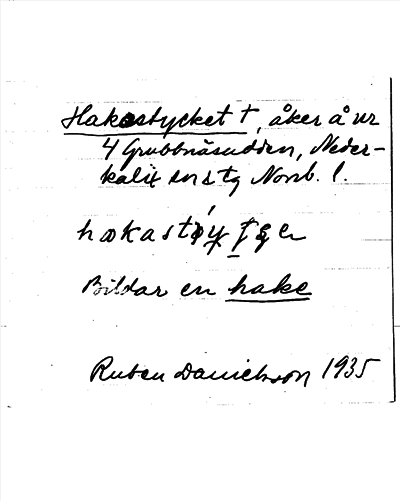 Hakastycket †, åker å nr
4 Grubbnäsudden, Neder-
kalix sn & tg Norrb. l.
Bildar en hake
Ruben Danielsson 1935